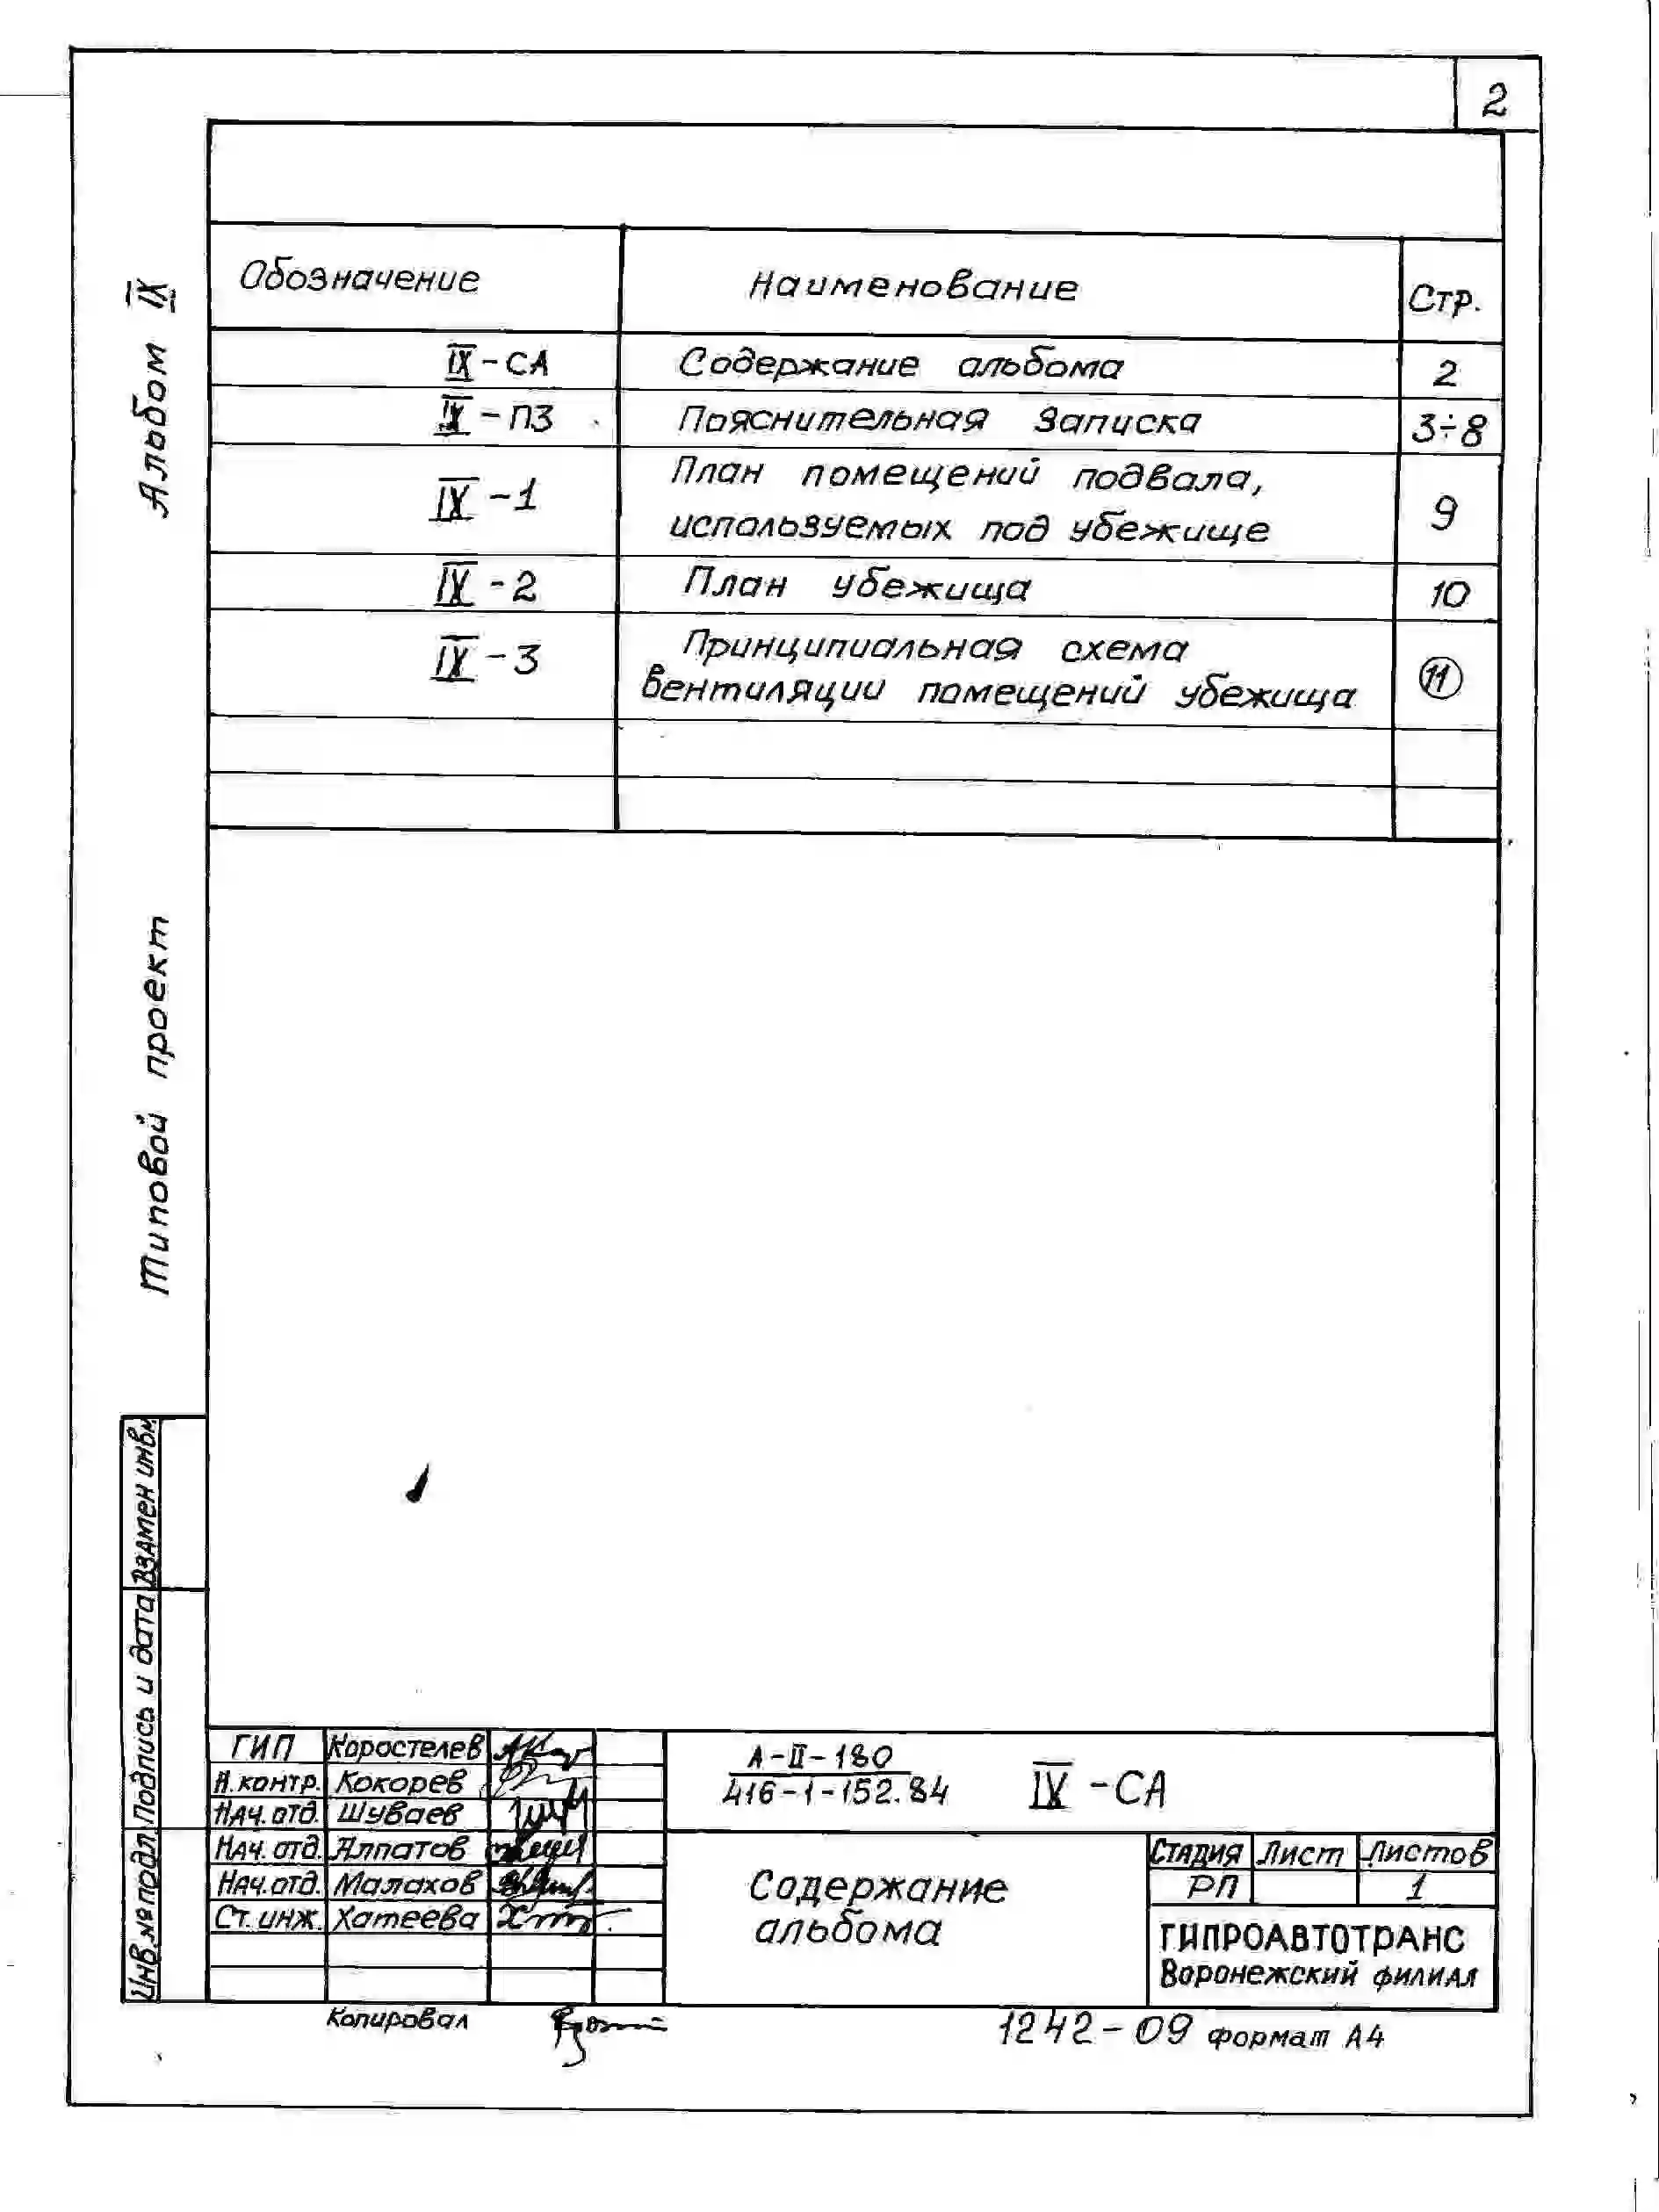 2
Альбом IX
Типовой проект
Обозначение Наименование Стр.
IX-СА Содержание альбома 2
IX-ПЗ Пояснительная записка 3÷8
IX-1 План помещений подвала, используемых под убежище 9
IX-2 План убежища 10
IX-3 Принципиальная схема вентиляции помещений убежища 11
Взамен инв.№
Подпись и дата
Инв.№ подл.
ГИП Коростелев
Н.контр. Кокорев
Нач.отд. Шуваев
Нач.отд. Алпатов
Нач.отд. Малахов
Ст.инж. Хатеева
А-II-180
416-1-152.84
IX-СА
Содержание
альбома
Стадия Лист Листов
РП 1
ГИПРОАВТОТРАНС
Воронежский филиал
Копировал
1242-09 формат А4